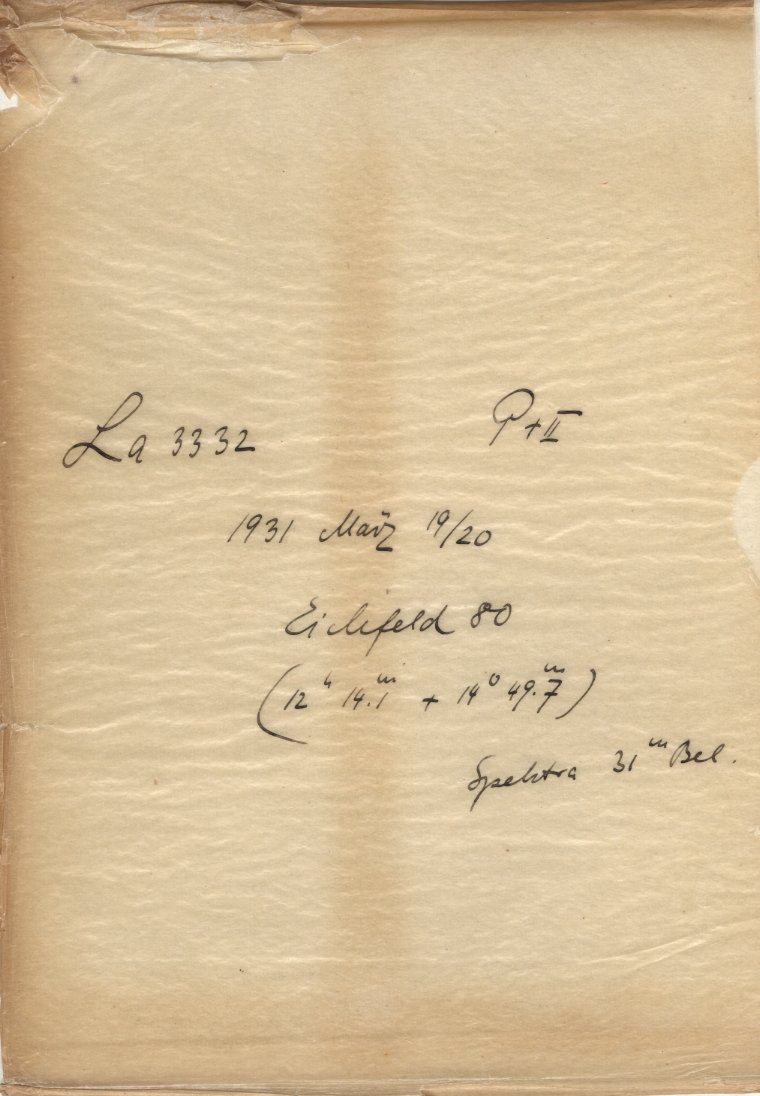 La 3332 P + II
1931 März 19/20
Eichfeld 80
(12ʰ 14.1ᵐ + 14⁰ 49.7ᵐ)
Spektra 31ᵐ Bel.